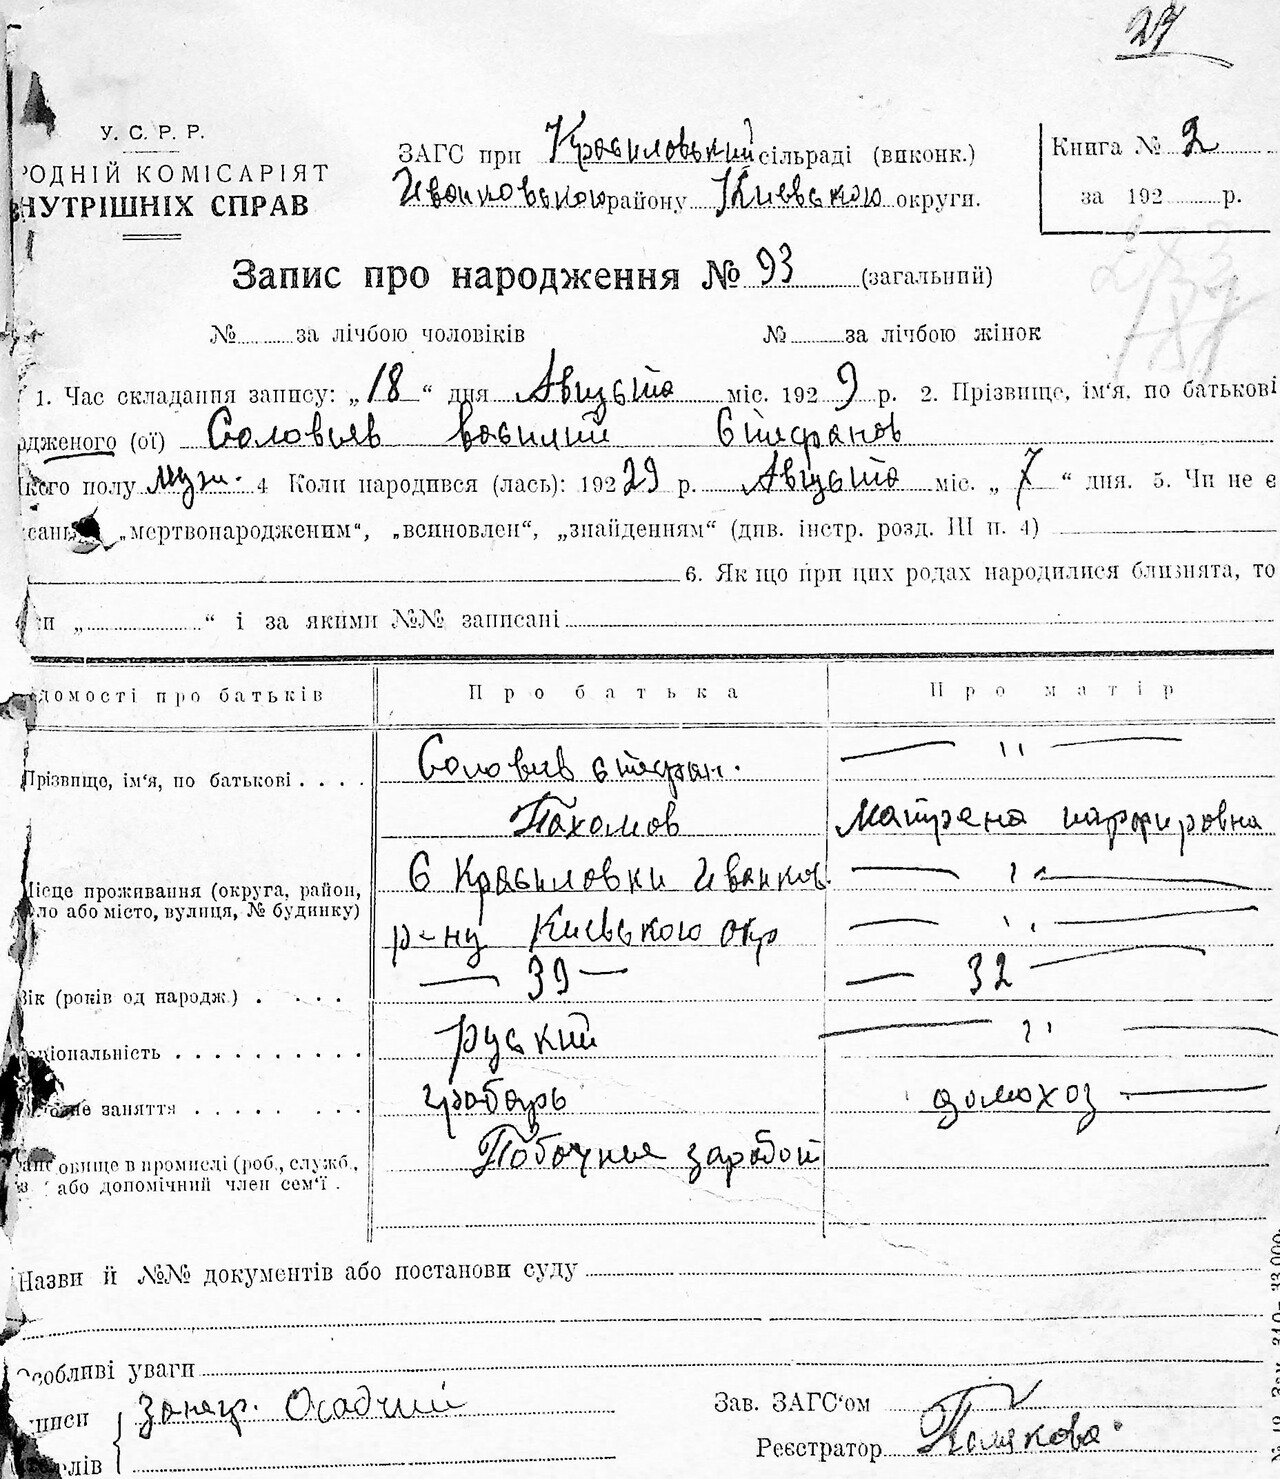 24
У. С. Р. Р.
РОДНІЙ КОМІСАРІЯТ
ВНУТРІШНІХ СПРАВ
ЗАГС при Красиловський сільраді (виконк.)
Иванковською району Київською округи.
Книга № 2
за 192 р.
Запис про народження № 93 (загальний)
№ за лічбою чоловіків № за лічбою жінок
1. Час складання запису: „18“ дня Августа міс. 192 9 р. 2. Прізвище, ім'я, по батькові
дженого (ої) Соловьев Василий Стефанов
кого полу муж. 4 Коли народився (лась): 192 29 р. Августа міс. „ 7 “ дня. 5. Чи не є
сань „мертвонародженим“, „всиновлен“, „знайденням“ (див. інстр. розд. III п. 4)
6. Як що при цих родах народилися близнята, то
„ “ і за якими №№ записані
домості про батьків Про батька Про матір
Прізвище, ім'я, по батькові . . . . Соловьев Стефан. — " —
Пахомов Матрена парфировна
Місце проживання (округа, район, С Красиловки Иванков. — " —
ло або місто, вулиця, № будинку) р-ну Київською окр — " —
Вік (років од народж.) . . . . — 39 — — 32 —
ціональність . . . . . . . . . . руский — " —
не заняття . . . . . . . . грабарь домохоз —
Побочные заработ
овище в промислі (роб., служб.,
або допомічний член сем'ї .
Назви й №№ документів або постанови суду
Особливі уваги
писи Осадчий
елів
Зав. ЗАГС'ом
Реєстратор Полякова.